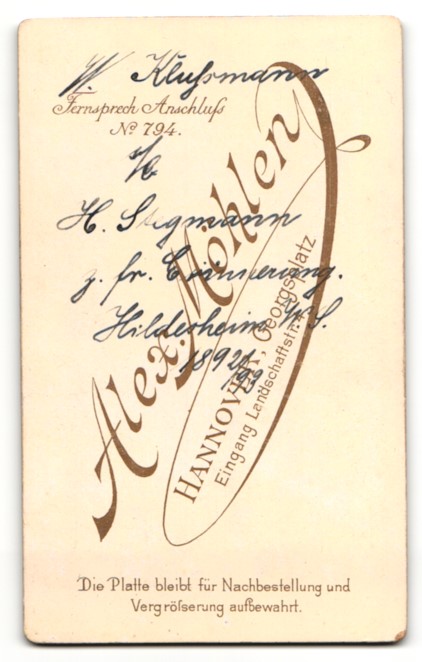 W. Klußmann
Fernsprech Anschluß
No 794.
s/l
H. Stegmann
z. fr. Erinnerung.
Hildesheim W.S.
1892/93
Alex. Möhlen
HANNOVER, Georgsplatz 
Eingang Landschaftstr.
Die Platte bleibt für Nachbestellung und
Vergröſserung aufbewahrt.